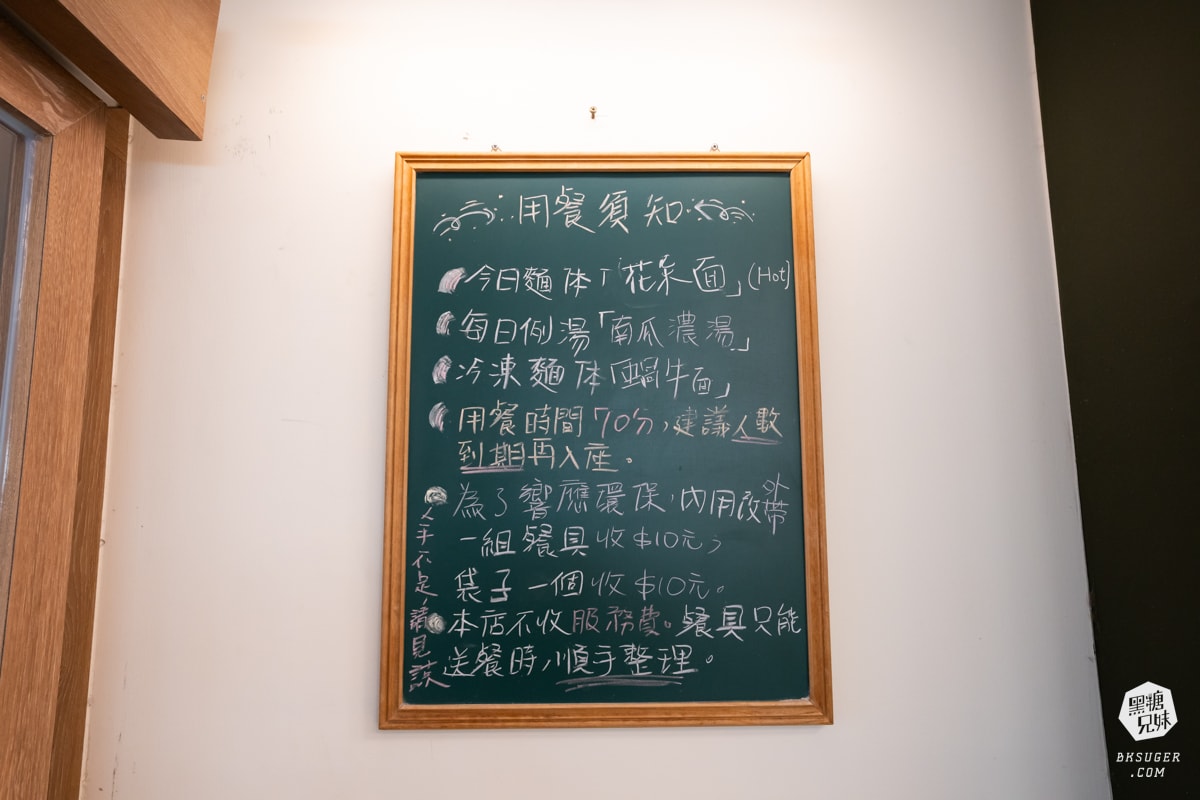 用餐須知
今日麵体「花朵面」(Hot)
每日例湯「南瓜濃湯」
冷凍麵体「蝸牛面」
用餐時間70分,建議人數
到期再入座。
為了響應環保,內用改外帶
一組餐具收$10元,
袋子一個收$10元。
本店不收服務費。餐具只能
送餐時,順手整理。
人手不足,請見諒
黑糖
兄妹
BKSUGER
.COM